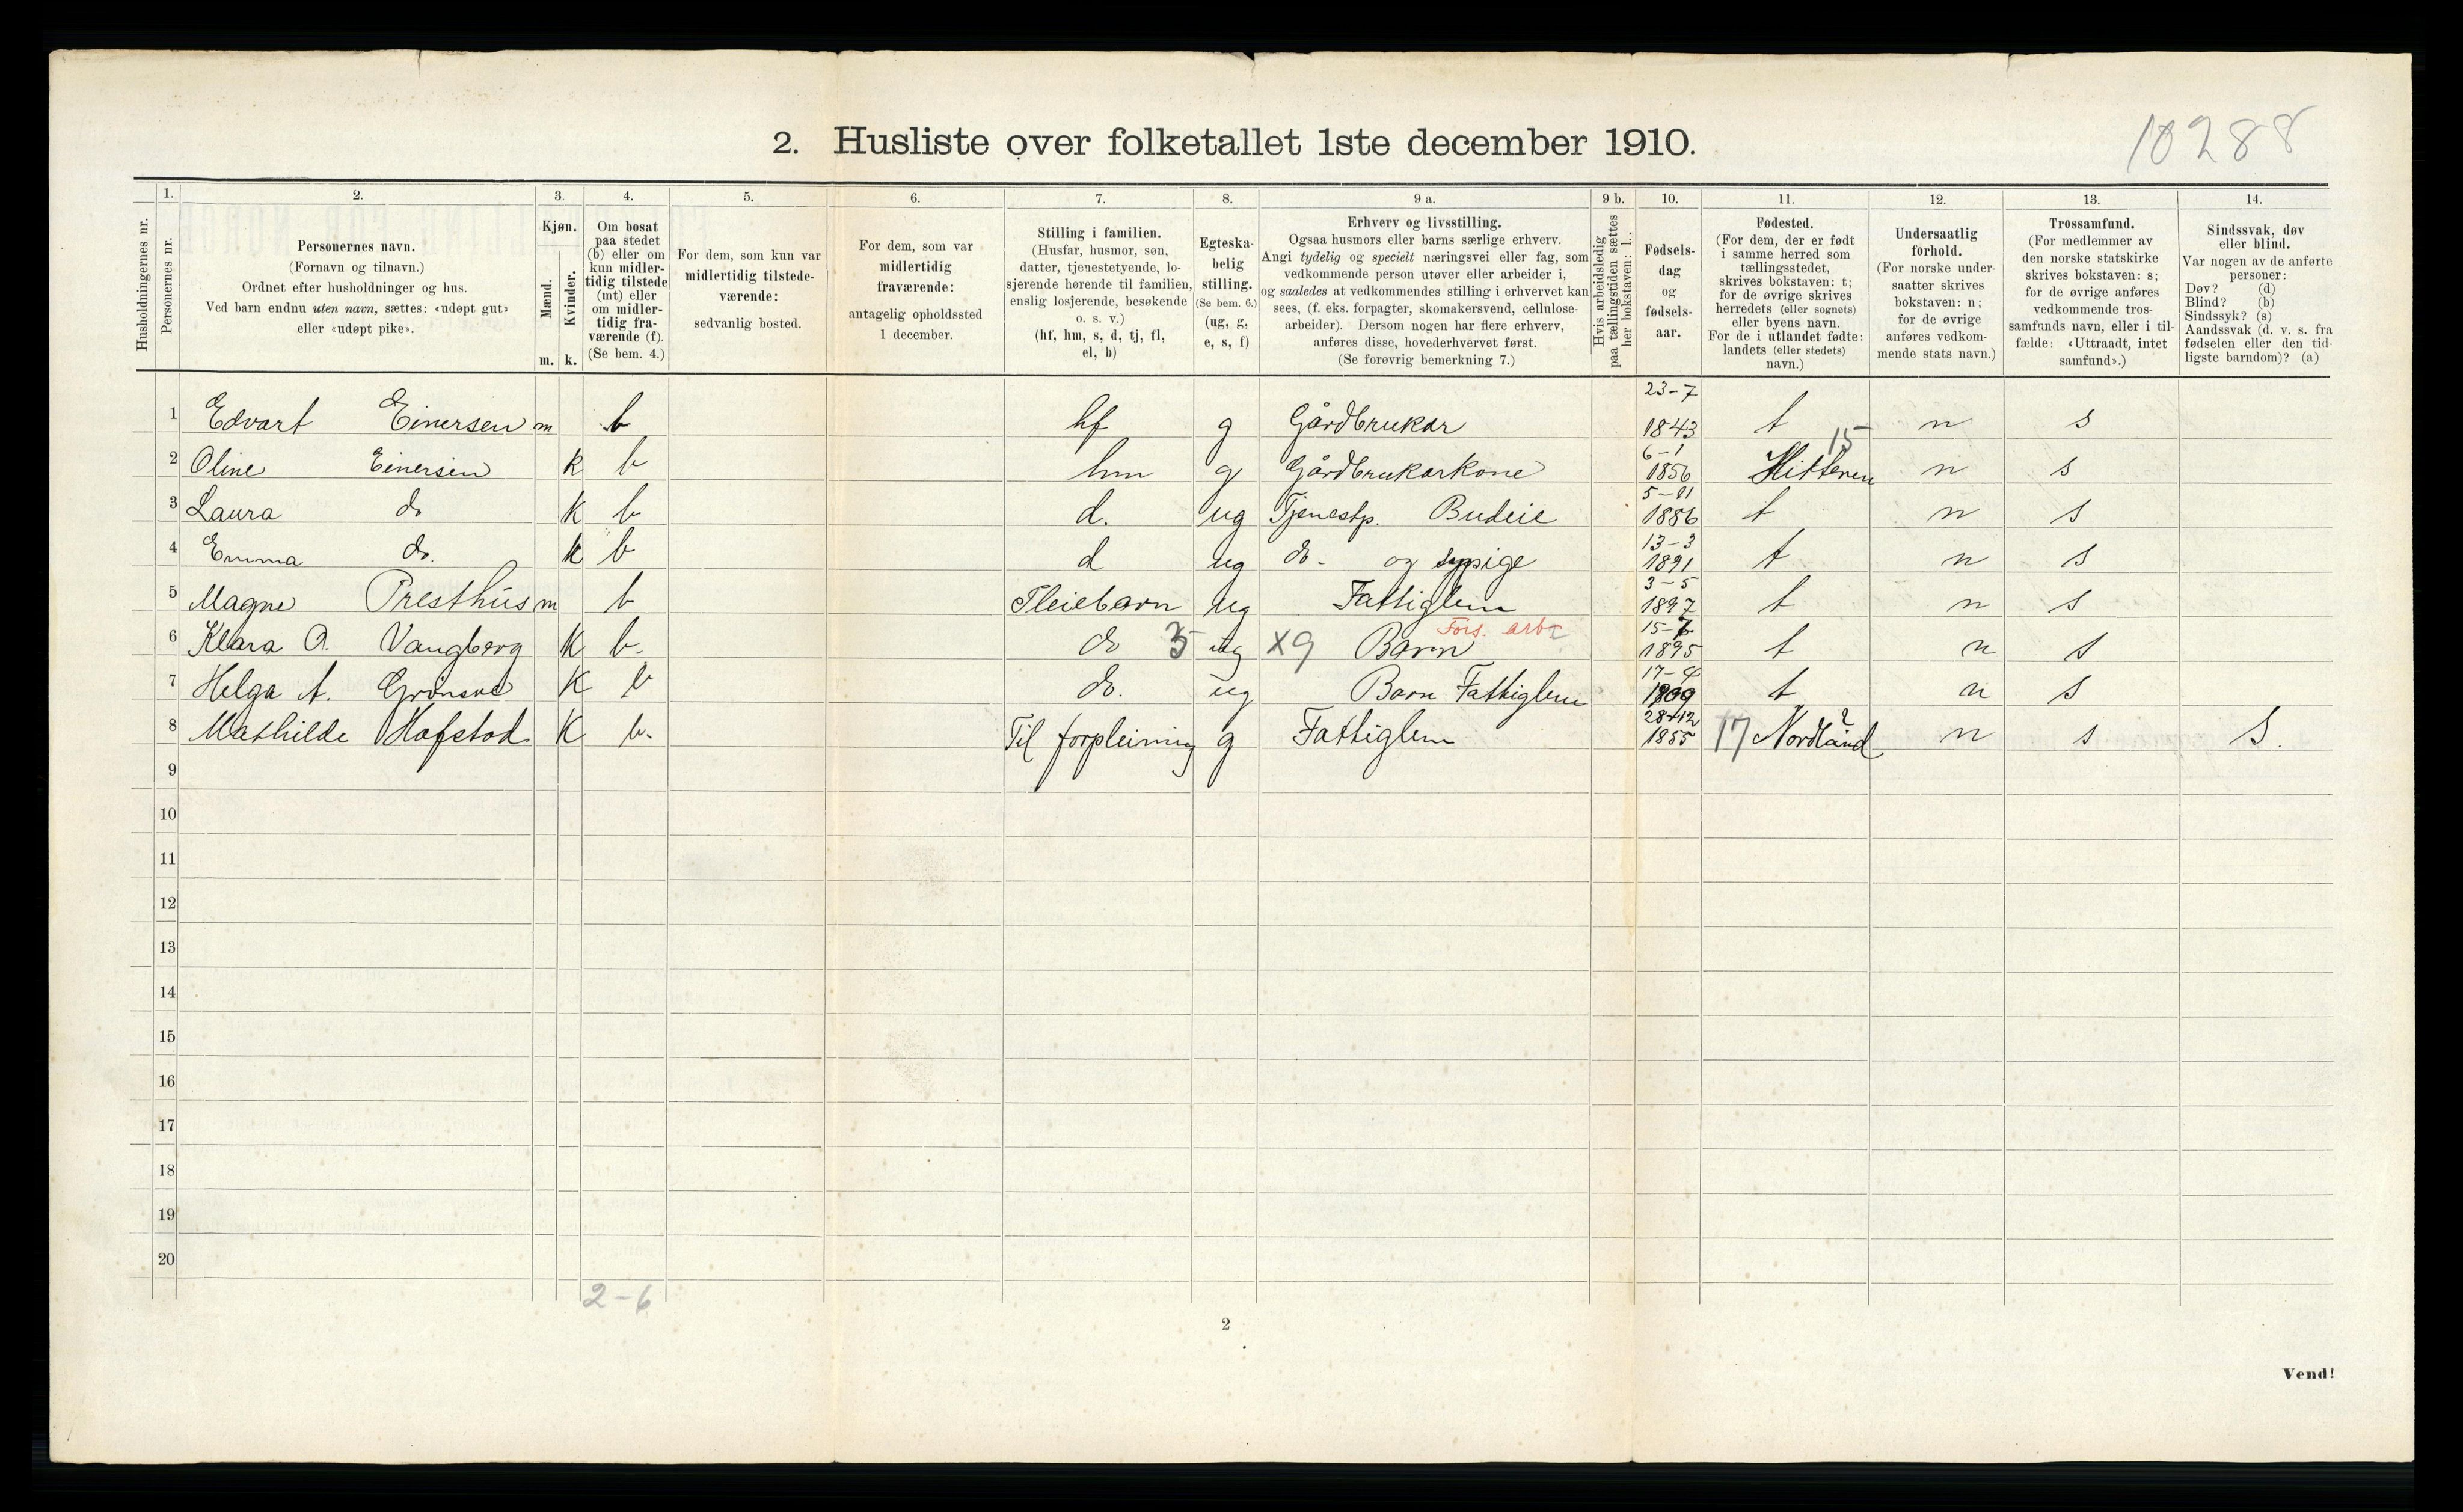 10288
2. Husliste over folketallet 1ste december 1910.
Husholdningernes nr.
1.
Personernes nr.
2.
Personernes navn.
(Fornavn og tilnavn.)
Ordnet efter husholdninger og hus.
Ved barn endnu uten navn, sættes: «udøpt gut»
eller «udøpt pike».
3.
Kjøn.
Mænd.
Kvinder.
m. k.
4.
Om bosat
paa stedet
(b) eller om
kun midler-
tidig tilstede
(mt) eller
om midler-
tidig fra-
værende (f).
(Se bem. 4.)
5.
For dem, som kun var
midlertidig tilstede-
værende:
sedvanlig bosted.
6.
For dem, som var
midlertidig
fraværende:
antagelig opholdssted
1 december.
7.
Stilling i familien.
(Husfar, husmor, søn,
datter, tjenestetyende, lo-
sjerende hørende til familien,
enslig losjerende, besøkende
o. s. v.)
(hf, hm, s, d, tj, fl,
el, b)
8.
Egteska-
belig
stilling.
(Se bem. 6.)
(ug, g,
e, s, f)
9 a.
Erhverv og livsstilling.
Ogsaa husmors eller barns særlige erhverv.
Angi tydelig og specielt næringsvei eller fag, som
vedkommende person utøver eller arbeider i,
og saaledes at vedkommendes stilling i erhvervet kan
sees, (f. eks. forpagter, skomakersvend, cellulose-
arbeider). Dersom nogen har flere erhverv,
anføres disse, hovederhvervet først.
(Se forøvrig bemerkning 7.)
9 b.
Hvis arbeidsledig
paa tællingstiden sættes
her bokstaven: l.
10.
Fødsels-
dag
og
fødsels-
aar.
11.
Fødested.
(For dem, der er født
i samme herred som
tællingsstedet,
skrives bokstaven: t;
for de øvrige skrives
herredets (eller sognets)
eller byens navn.
For de i utlandet fødte:
landets (eller stedets)
navn.)
12.
Undersaatlig
forhold.
(For norske under-
saatter skrives
bokstaven: n;
for de øvrige
anføres vedkom-
mende stats navn.)
13.
Trossamfund.
(For medlemmer av
den norske statskirke
skrives bokstaven: s;
for de øvrige anføres
vedkommende tros-
samfunds navn, eller i til-
fælde: «Uttraadt, intet
samfund».)
14.
Sindssvak, døv
eller blind.
Var nogen av de anførte
personer:
Døv? (d)
Blind? (b)
Sindssyk? (s)
Aandssvak (d. v. s. fra
fødselen eller den tid-
ligste barndom)? (a)
1 Edvart Einersen m b hf g Gårdbrukar 23-7 1843 t n s
2 Oline Einersen k b hm g Gårdbrukarkone 6-1 1856 Hitteren 15 n s
3 Laura do k b d. ug Tjenestp. Budeie 5-11 1886 t n s
4 Emma do. k b d ug do. og sypige 13-3 1891 t n s
5 Magne Presthus m b Pleiebarn ug Fattiglem 3-5 1897 t n s
6 Klara O. Vangberg k b. do 3 ug x9 Barn Fors. arb 15-7 1895 t n s
7 Helga A. k b do. ug Barn Fattiglem 17-4 1899 t n s
8 Mathilde Hofstad k b. Til forpleining g Fattiglem 28-12 1855 17 Nordland ? n s S.
9
10
11
12
13
14
15
16
17
18
19
20
2-6
2
Vend!